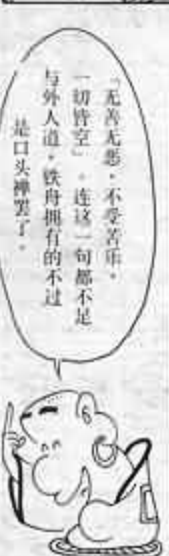 「无善无恶，不受苦乐，
一切皆空」。连这一句都不足
与外人道，铁舟拥有的不过
是口头禅罢了。